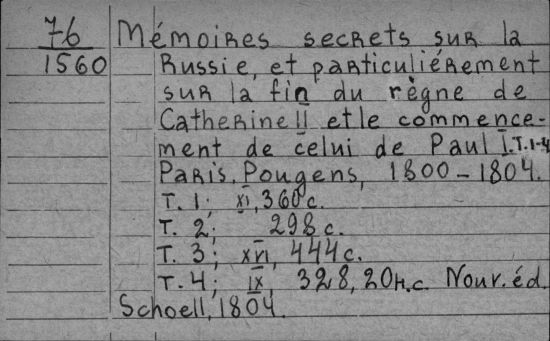 76
1560
Mémoires secrets sur la
Russie, et particuliérement
sur la fin du règne de
Catherine II et le commence-
ment de celui de Paul I. T. 1-4
Paris, Pougens, 1800-1804.
T. 1; XI, 360 c.
T. 2; 298 c.
T. 3; XVI, 444 c.
T. 4; IX, 328, 20 н.c. Nouv. éd.
Schoell, 1804.